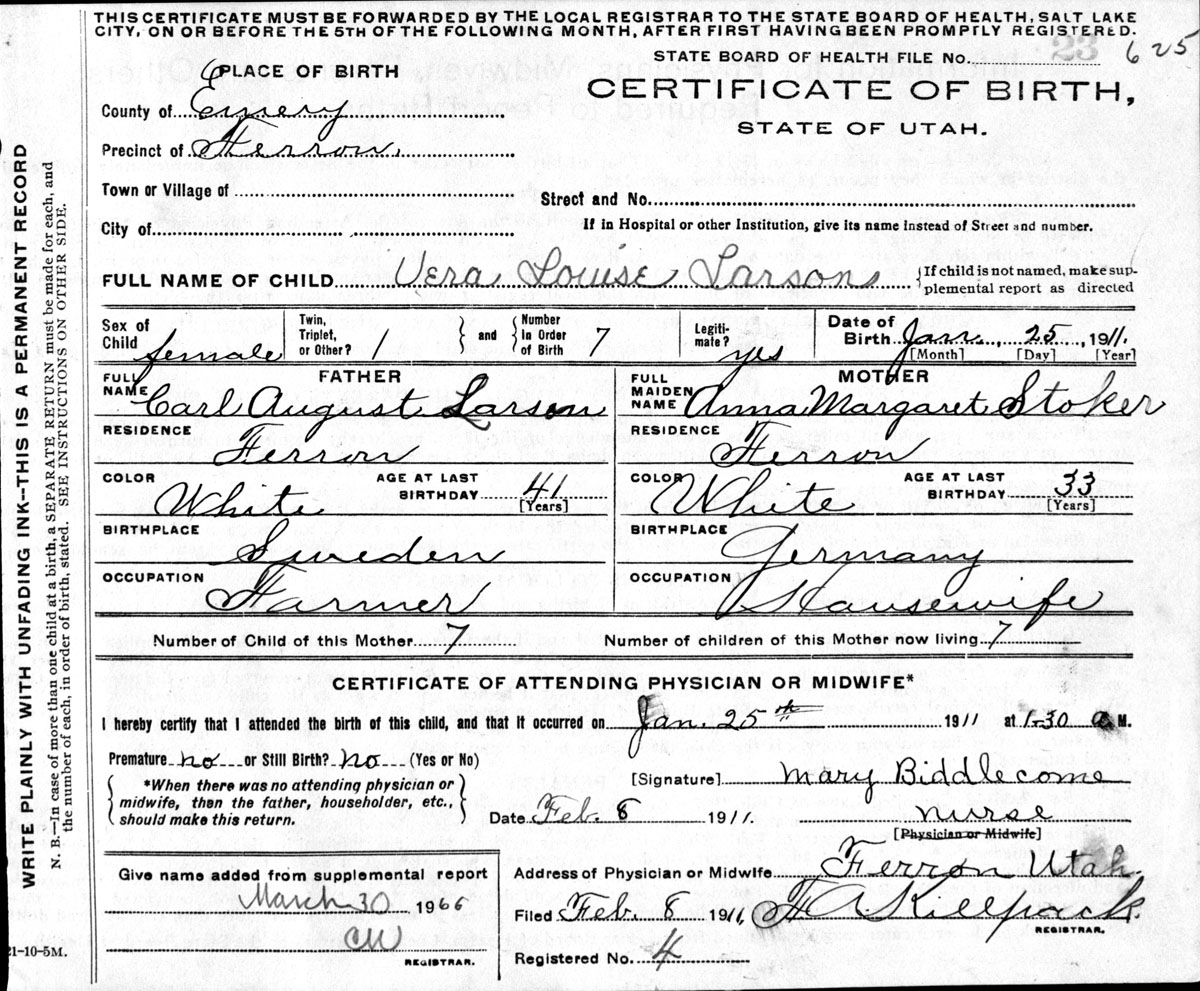 THIS CERTIFICATE MUST BE FORWARDED BY THE LOCAL REGISTRAR TO THE STATE BOARD OF HEALTH, SALT LAKE
CITY, ON OR BEFORE THE 5TH OF THE FOLLOWING MONTH, AFTER FIRST HAVING BEEN PROMPTLY REGISTERED.
STATE BOARD OF HEALTH FILE No. 23 625
PLACE OF BIRTH
CERTIFICATE OF BIRTH,
STATE OF UTAH.
County of Emery
Precinct of Ferron.
Town or Village of
Street and No.
City of
If in Hospital or other Institution, give its name instead of Street and number.
FULL NAME OF CHILD Vera Louise Larson { If child is not named, make sup-
plemental report as directed
Sex of Child female
Twin, Triplet, or Other? 1 } and { Number In Order of Birth 7
Legiti-mate? yes
Date of Birth Jan. 25, 1911.
[Month] [Day] [Year]
FATHER
FULL NAME Carl August Larson
RESIDENCE Ferron
COLOR White AGE AT LAST BIRTHDAY 41 [Years]
BIRTHPLACE Sweden
OCCUPATION Farmer
MOTHER
FULL MAIDEN NAME Anna Margaret Stoker
RESIDENCE Ferron
COLOR White AGE AT LAST BIRTHDAY 33 [Years]
BIRTHPLACE Germany
OCCUPATION Housewife
Number of Child of this Mother 7 Number of children of this Mother now living 7
CERTIFICATE OF ATTENDING PHYSICIAN OR MIDWIFE*
I hereby certify that I attended the birth of this child, and that it occurred on Jan. 25th 1911 at 1-30 a M.
Premature no or Still Birth? no (Yes or No)
[Signature] Mary Biddlecome
{ *When there was no attending physician or
midwife, then the father, householder, etc.,
should make this return. }
Date Feb. 8 1911. nurse
[Physician or Midwife]
Address of Physician or Midwife Ferron Utah.
Filed Feb. 8 1911 F A Killpack
REGISTRAR.
Registered No. 4
Give name added from supplemental report
March 30 1966
CW
REGISTRAR.
21-10-5M.
WRITE PLAINLY WITH UNFADING INK--THIS IS A PERMANENT RECORD
N. B.—In case of more than one child at a birth, a SEPARATE RETURN must be made for each, and
the number of each, in order of birth, stated. SEE INSTRUCTIONS ON OTHER SIDE.